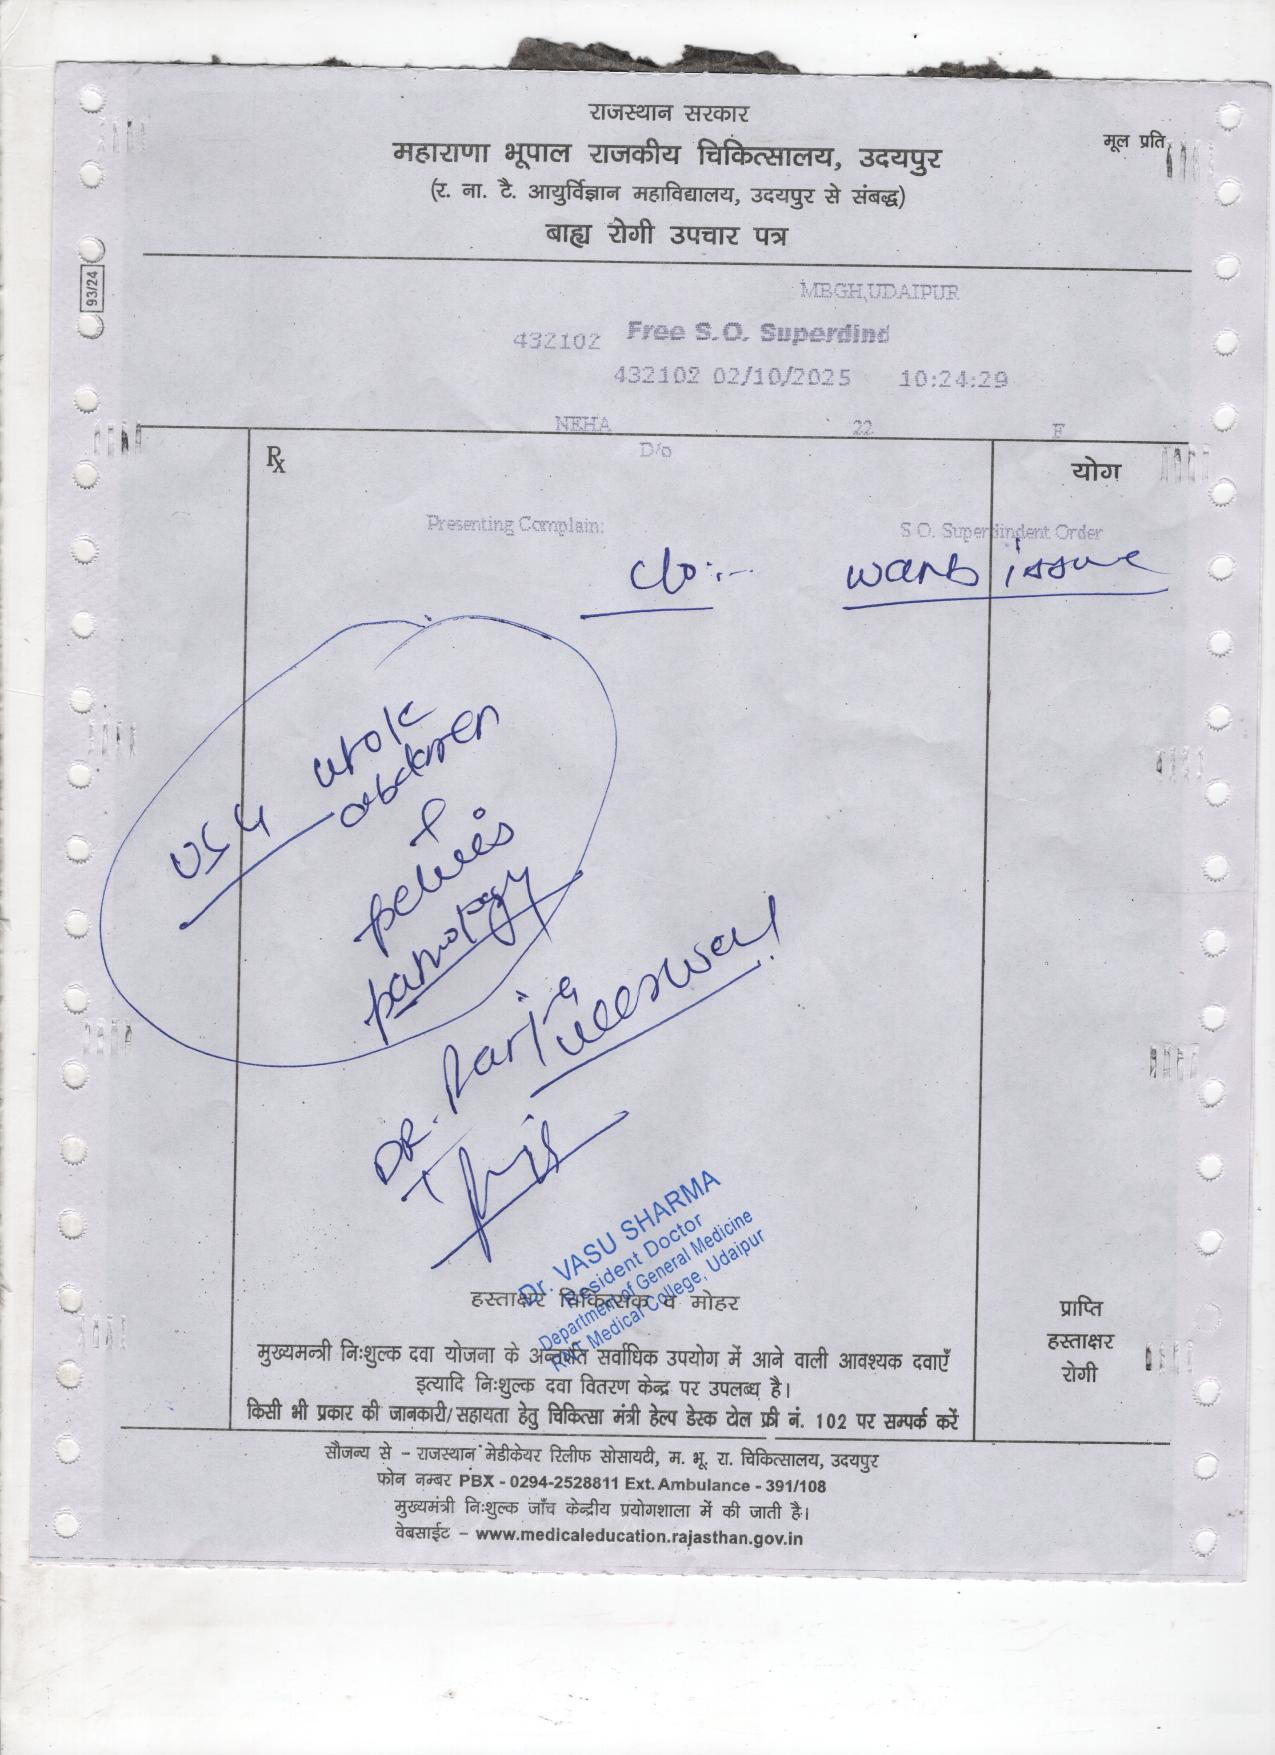 राजस्थान सरकार
महाराणा भूपाल राजकीय चिकित्सालय, उदयपुर
मूल प्रति
(र. ना. टै. आयुर्विज्ञान महाविद्यालय, उदयपुर से संबद्ध)
बाह्य रोगी उपचार पत्र
93/24
MBGH,UDAIPUR
432102 Free S.O. Superdind
432102 02/10/2025 10:24:29
NEHA 22 F
D/o
Rx
योग
Presenting Complain:
S O. Superdindent Order
c/o:-- wants issue
USG whole
abdomen
pelvis
pathology
DR.
Dr. VASU SHARMA
Resident Doctor
Department of General Medicine
RNT Medical College, Udaipur
हस्ताक्षर चिकित्सक व मोहर
प्राप्ति
हस्ताक्षर
रोगी
मुख्यमन्त्री निःशुल्क दवा योजना के अन्तर्गत सर्वाधिक उपयोग में आने वाली आवश्यक दवाएँ
इत्यादि निःशुल्क दवा वितरण केन्द्र पर उपलब्ध है।
किसी भी प्रकार की जानकारी/सहायता हेतु चिकित्सा मंत्री हेल्प डेस्क टोल फ्री नं. 102 पर सम्पर्क करें
सौजन्य से – राजस्थान मेडीकेयर रिलीफ सोसायटी, म. भू. रा. चिकित्सालय, उदयपुर
फोन नम्बर PBX - 0294-2528811 Ext. Ambulance - 391/108
मुख्यमंत्री निःशुल्क जाँच केन्द्रीय प्रयोगशाला में की जाती है।
वेबसाईट – www.medicaleducation.rajasthan.gov.in